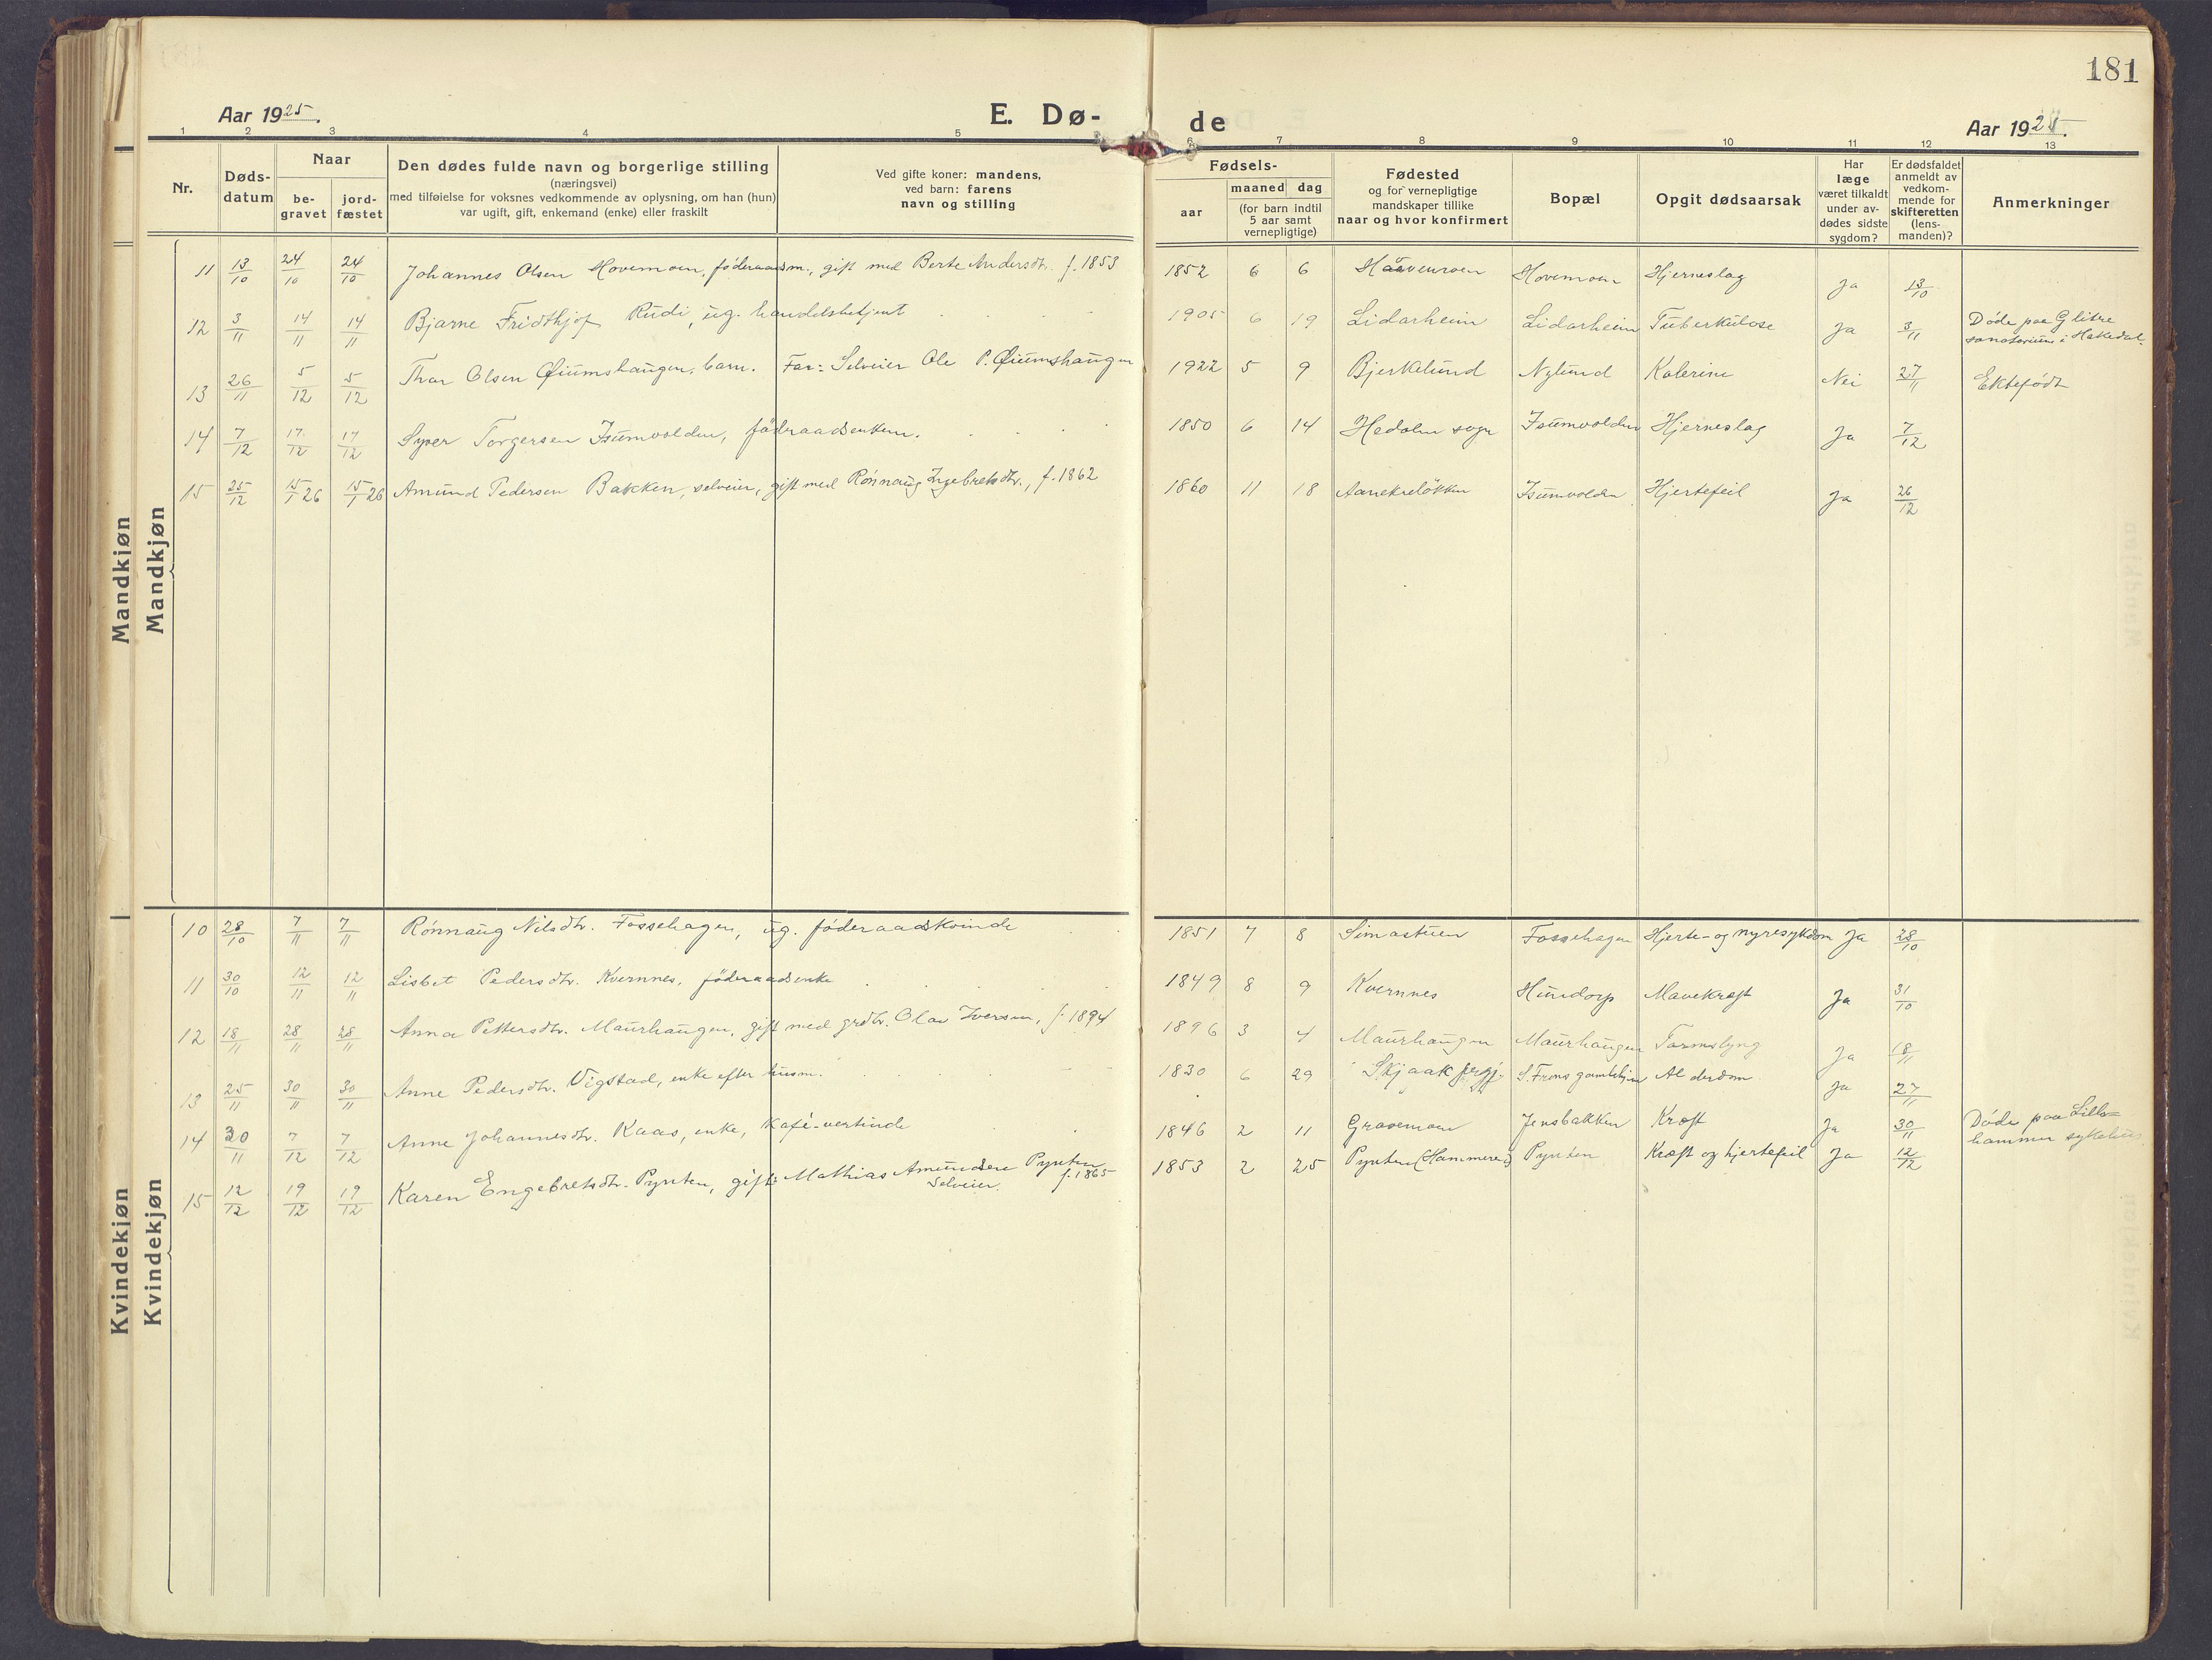 181
Aar 1925.
E. Dø-
de
Aar 1925.
1 2 3 4 5 6 7 8 9 10 11 12 13
Nr.
Døds-
datum
Naar
be-
gravet
jord-
fæstet
Den dødes fulde navn og borgerlige stilling
(næringsvei)
med tilføielse for voksnes vedkommende av oplysning, om han (hun)
var ugift, gift, enkemand (enke) eller fraskilt
Ved gifte koner: mandens,
ved barn: farens
navn og stilling
Fødsels-
aar
maaned dag
(for barn indtil
5 aar samt
vernepligtige)
Fødested
og for vernepligtige
mandskaper tillike
naar og hvor konfirmert
Bopæl
Opgit dødsaarsak
Har
læge
været tilkaldt
under av-
dødes sidste
sygdom?
Er dødsfaldet
anmeldt av
vedkom-
mende for
skifteretten
(lens-
manden)?
Anmerkninger
Mandkjøn
Mandkjøn
11 13/10 24/10 24/10 Johannes Olsen Hovemoen, føderaadsm., gift med Berte Andersdtr. f. 1853 1852 6 6 Hovemoen Hjerneslag Ja 13/10
12 3/11 14/11 14/11 Bjarne Fridthjof Rudi, ug. handelsbetjent 1905 6 19 Lidarheim Lidarheim Tuberkulose Ja 3/11 Døde paa Glitre
sanatorium i Hakedal.
13 26/11 5/12 5/12 Thor Olsen Øiumshaugen, barn. Far: Selveier Ole P. Øiumshaugen 1922 5 9 Bjerkelund Nylund Kolerine Nei 27/11 Ektefødt
14 7/12 17/12 17/12 Syver Torgersen Isumvolden, føderaadsenkem. 1850 6 14 Hedalen sogn Isumvolden Hjerneslag Ja 7/12
15 25/12 15/1 26 15/1 26 Amund Pedersen Bakken, selveier, gift med Rønnaug Ingebretsdtr., f. 1862 1860 11 18 Isumvolden Hjertefeil Ja 26/12
Kvindekjøn
Kvindekjøn
10 28/10 7/11 7/11 Rønnaug Nilsdtr. Fossehagen, ug. føderaadskvinde 1851 7 8 Simastuen Fossehagen Hjerte- og nyresykdom Ja 28/10
11 30/10 12/11 12/11 Lisbet Pedersdtr. Kvernnes, føderaadsenke 1849 8 9 Kvernnes Hundorp Mavekræft Ja 31/10
12 18/11 28/11 28/11 Anna Pettersdtr. Maurhaugen, gift med grdbr. Olav Iversen, f. 1894 1896 3 4 Maurhaugen Maurhaugen Tarmslyng Ja 18/11
13 25/11 30/11 30/11 Anne Pedersdtr. Vigstad, enke efter husm. 1830 6 29 Skjaak prgj. S. Frons gamlehjem Alderdom Ja 27/11
14 30/11 7/12 7/12 Anne Johannesdtr. Kaas, enke, kafé-vertinde 1846 2 11 Gravemoen Jensbakken Kræft Ja 30/11 Døde paa Lille=
hammer sykehus
15 12/12 19/12 19/12 Karen Engebretsdtr. Pynten, gift: Mathias Amundsen Pynten
selveier. f. 1865 1853 2 25 Pynten (Hammeren) Pynten Kræft og hjertefeil Ja 12/12